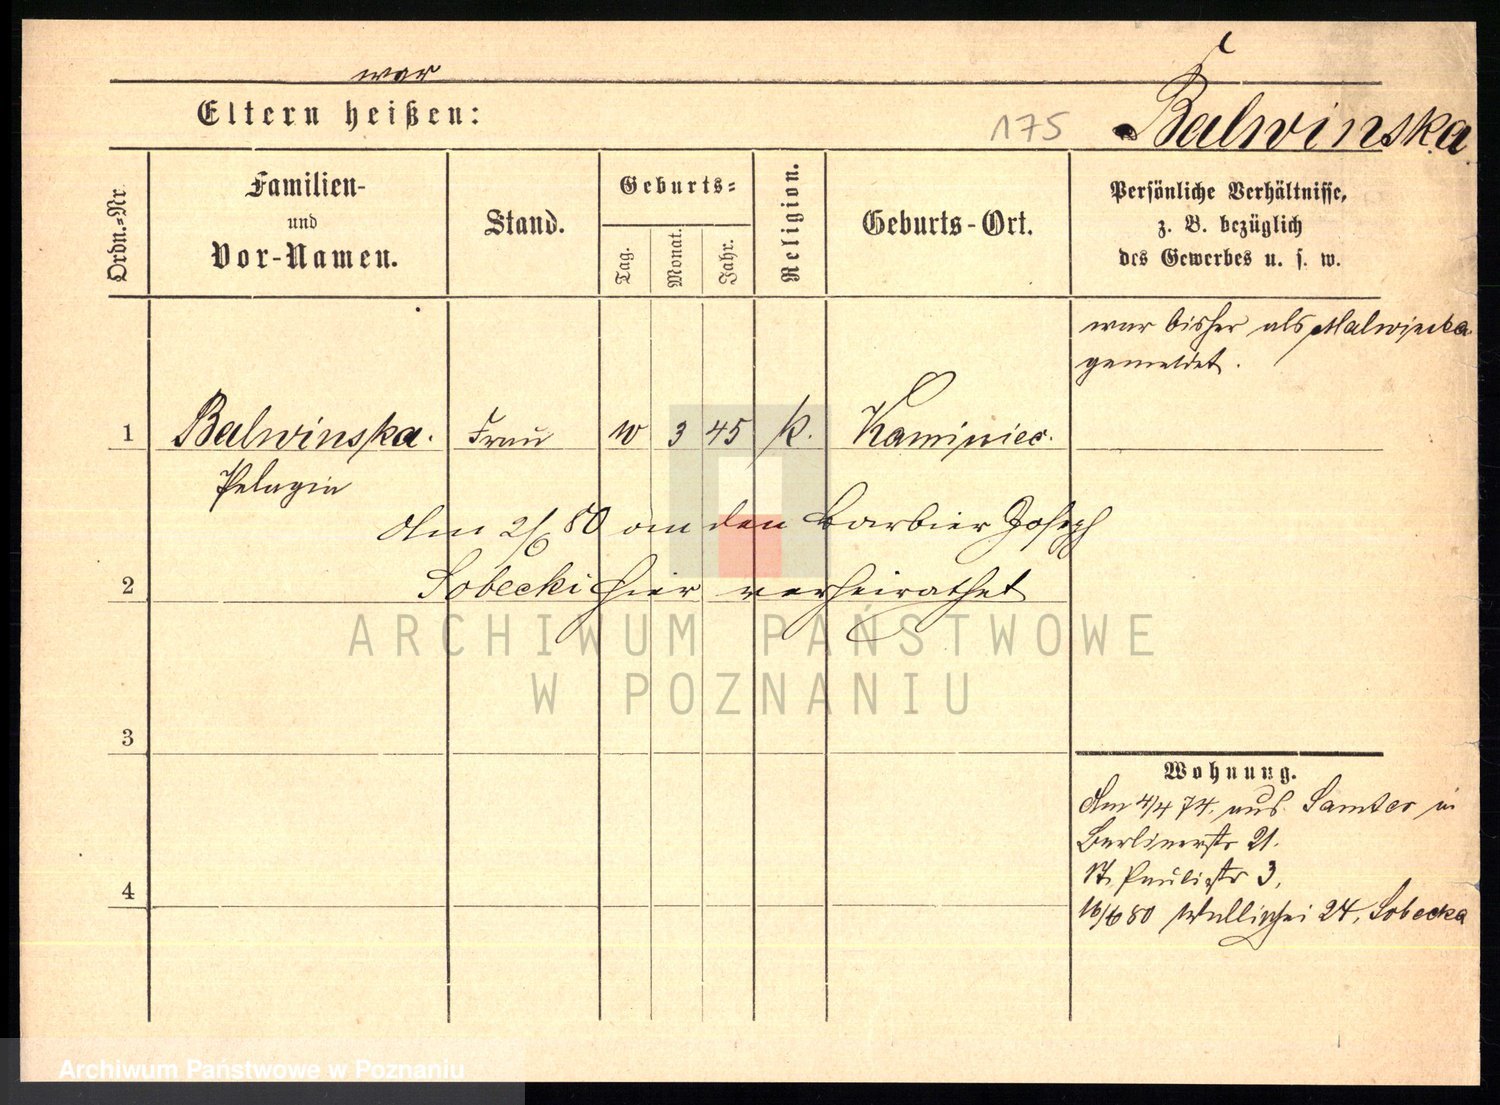 war
Eltern heißen:
175
Balwinska
Ordn.=Nr
Familien-
und
Vor-Namen.
Stand.
Geburts=
Tag.
Monat.
Jahr.
Religion.
Geburts-Ort.
Persönliche Verhältnisse,
z. B. bezüglich
des Gewerbes u. s. w.
war bisher als Malwinska
gemeldet.
1
Balwinska.
Frau
10
3
45
k.
Kaminiec.
Pelagia
Am 2/6 80 an den Barbier Joseph
2
Sobecki hier verheirathet
ARCHIWUM PAŃSTWOWE
W POZNANIU
3
Wohnung.
Am 4/4 74. aus Samter in
Berlinerstr 21.
St. Paulistr 3,
16/6 80 Wallischei 24, Sobecka
4
Archiwum Państwowe w Poznaniu